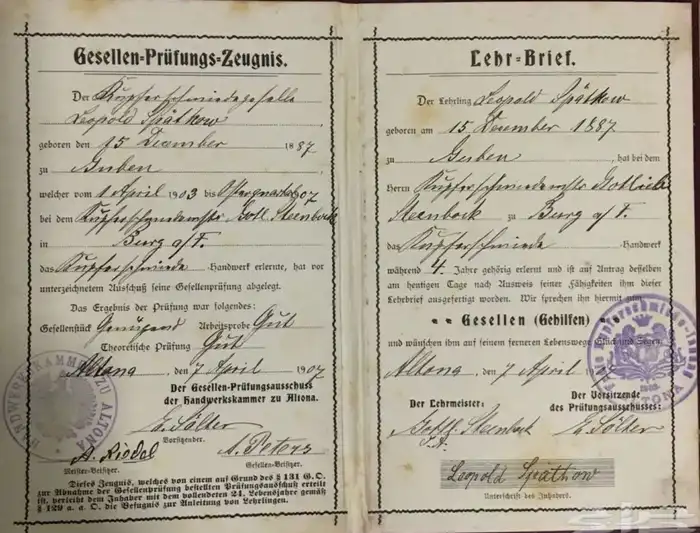 Gesellen-Prüfungs-Zeugnis.
Der Kupferschmiedegeselle
Leopold Spätkow
geboren den 15 Dezember 1887
zu Guben
welcher vom 1 April 1903 bis 1907
bei dem Gotl. Steenbock
in Burg a/F.
das Kupferschmiede -Handwerk erlernte, hat vor
unterzeichnetem Ausschuß seine Gesellenprüfung abgelegt.
Das Ergebnis der Prüfung war folgendes:
Gesellenstück Genügend Arbeitsprobe Gut
Theoretische Prüfung Gut
Altona, den 7 April 1907
Der Gesellen-Prüfungsausschuss
der Handwerkskammer zu Altona.
E. Sölter
Vorsitzender.
A. Riedel A. Peters
Meister-Beisitzer. Gesellen-Beisitzer.
Dieses Zeugnis, welches von einem auf Grund des § 131 G.O.
zur Abnahme der Gesellenprüfung bestellten Prüfungsausschuß erteilt
ist, verleiht dem Inhaber mit dem vollendeten 24. Lebensjahre gemäß
§ 129 a. a. O. die Befugnis zur Anleitung von Lehrlingen.
HANDWERKSKAMMER ZU ALTONA
Lehr-Brief.
Der Lehrling Leopold Spätkow
geboren am 15 Dezember 1887
zu Guben, hat bei dem
Herrn Kupferschmiedemstr Gotlieb
Steenbock zu Burg a/F.
das Kupferschmiede Handwerk
während 4 Jahre gehörig erlernt und ist auf Antrag desselben
am heutigen Tage nach Ausweis seiner Fähigkeiten ihm dieser
Lehrbrief ausgefertigt worden. Wir sprechen ihn hiermit zum
Gesellen (Gehilfen)
und wünschen ihm auf seinem ferneren Lebenswege Glück und Segen.
Altona, den 7 April 1907
Der Lehrmeister: Der Vorsitzende
des Prüfungsausschusses:
Gottl. Steenbock E. Sölter
Leopold Späthow
Unterschrift des Inhabers.
ALTONA